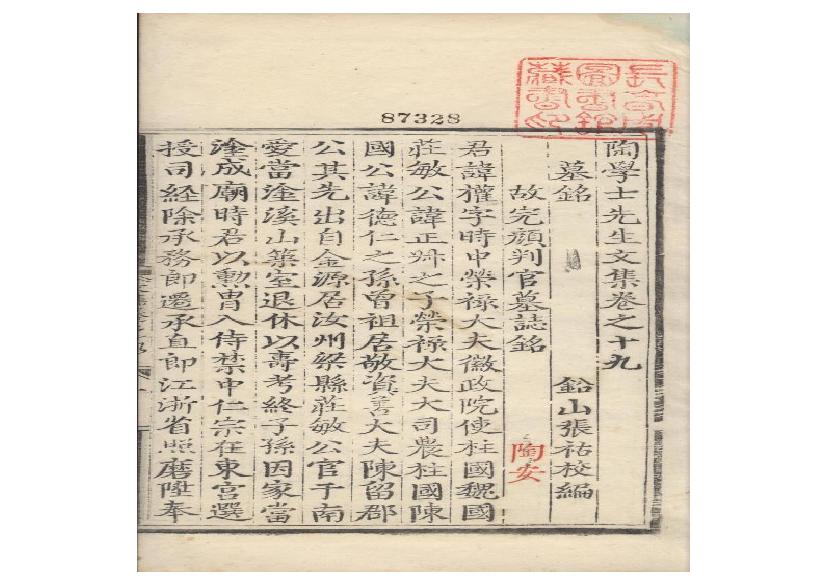 87328
陶學士先生文集卷之十九
墓銘 鉛山張祜校編
故完顏判官墓誌銘 陶安
君諱權字時中榮祿大夫徽政院使柱國魏國
莊敏公諱正叔之子榮祿大夫大司農柱國陳
國公諱德仁之孫曾祖居敬資善大夫陳留郡
公其先出自金源居汝州梁縣莊敏公官于南
愛當塗溪山築室退休以壽考終子孫因家當
塗成廟時君以勲胄入侍禁中仁宗在東宮選
授司経除承務郎遷承直郎江浙省照磨陞奉